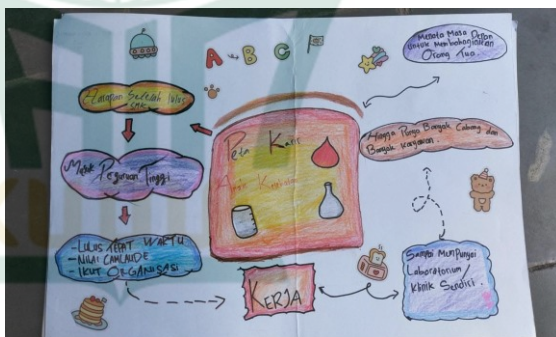 A B C
Menata Masa Depan
untuk Membahagiakan
Orang Tua.
Harapan Setelah lulus
SMK
Peta Karir
Hingga Punya Banyak Cabang dan
Banyak karyawan.
Masuk Perguruan Tinggi
- LULUS TEPAT WAKTU
- NILAI CAMLAUDE
- IKUT ORGANISASI
KERJA
Sampai Mempunyai
Laboratorium /
Klinik Sendiri.